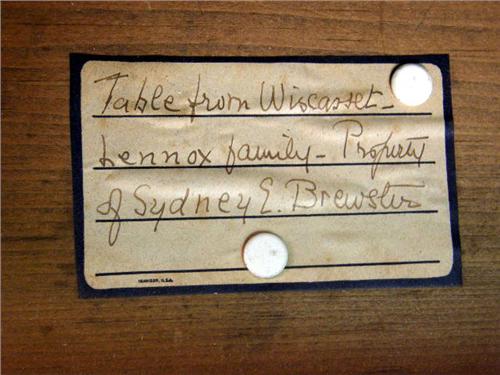 Table from Wiscasset -
Lennox family - Property
of Sydney E. Brewster
DENNISON, U.S.A.